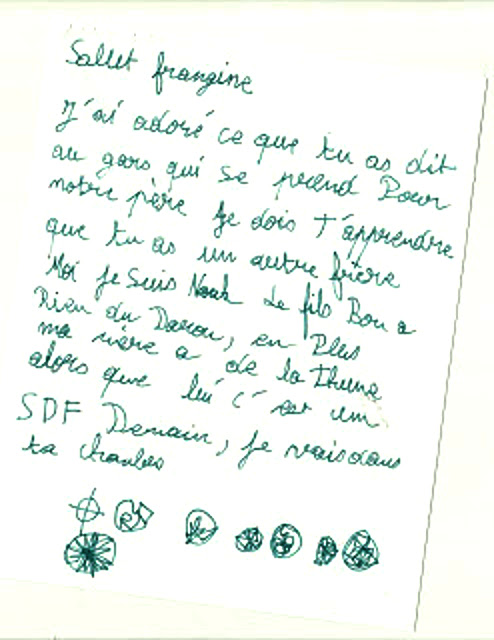 Sallut frangine
J'ai adoré ce que tu as dit
au gars qui se prend Pour
notre père Je dois T'apprendre
que tu as un autre frère
Moi Je Suis Noah Le fils Bon a
Rien du Daron, en Plus
ma mère a de la Thune
alors que lui c'est un
SDF Demain, Je vais dans
ta chambre